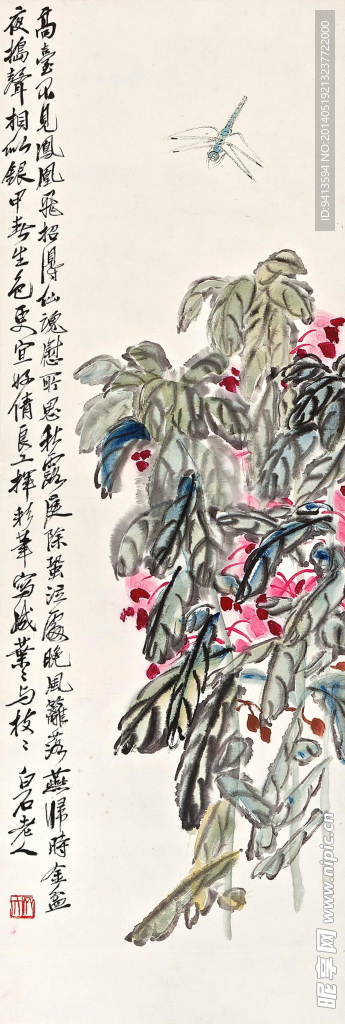 高臺不見鳳凰飛招得仙魂慰所思秋露庭除蛩泣處晚風籬落燕歸時金盆
夜搗聲相似銀甲春生色更宜好倩良工揮彩筆寫成葉葉與枝枝 白石老人
ID:9413594 NO:20140519213237722000
昵享网 www.nipic.cn